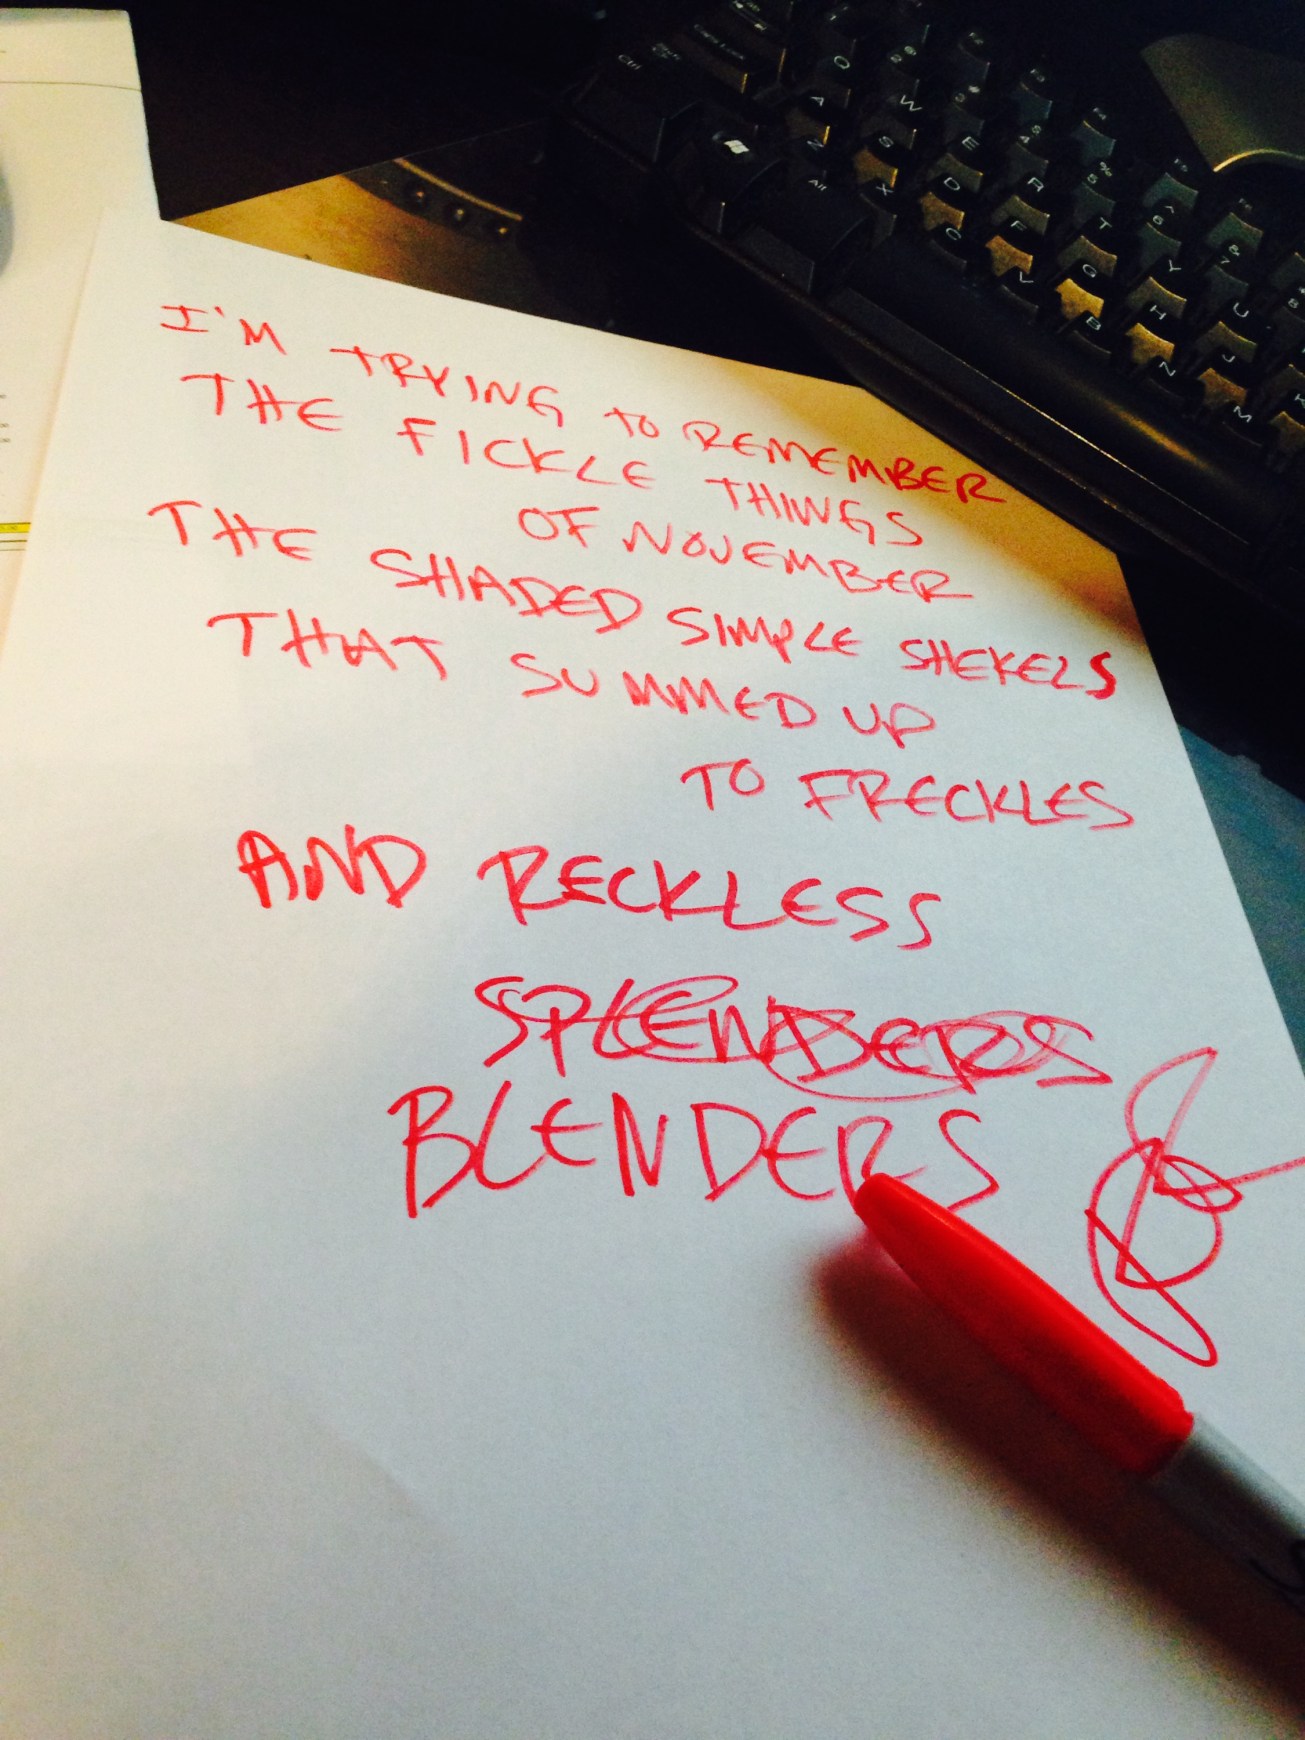 I'M TRYING TO REMEMBER
THE FICKLE THINGS
OF NOVEMBER
THE SHADED SIMPLE SHEKELS
THAT SUMMED UP
TO FRECKLES
AND RECKLESS
SPLENDERS
BLENDERS
Ctrl
Caps Lock
Alt
Q W E R T Y U
A S D F G H J K
Z X C V B N M